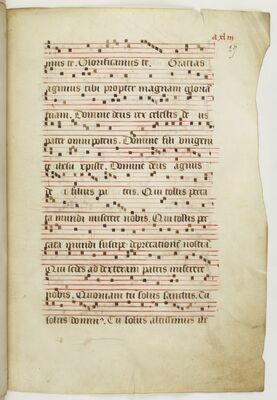 a xl iii
59
mus te. Glorificamus te. Gracias
agimus tibi propter magnam gloriā
tuam. Domine deus rex celestis de us
pater omnipotens. Domine fili unigeni
te ihesu xpiste. Domine deus agnus
de i filius pa tris. Qui tollis pecca
ta mundi miserere nobis. Qui tollis pec
cata mundi suscipe deprecationē nostrā.
Qui sedes ad dexteram patris miserere
nobis. Quoniam tu solus sanctus. Tu
solus dominꝰ. Tu solus altissimus ihe